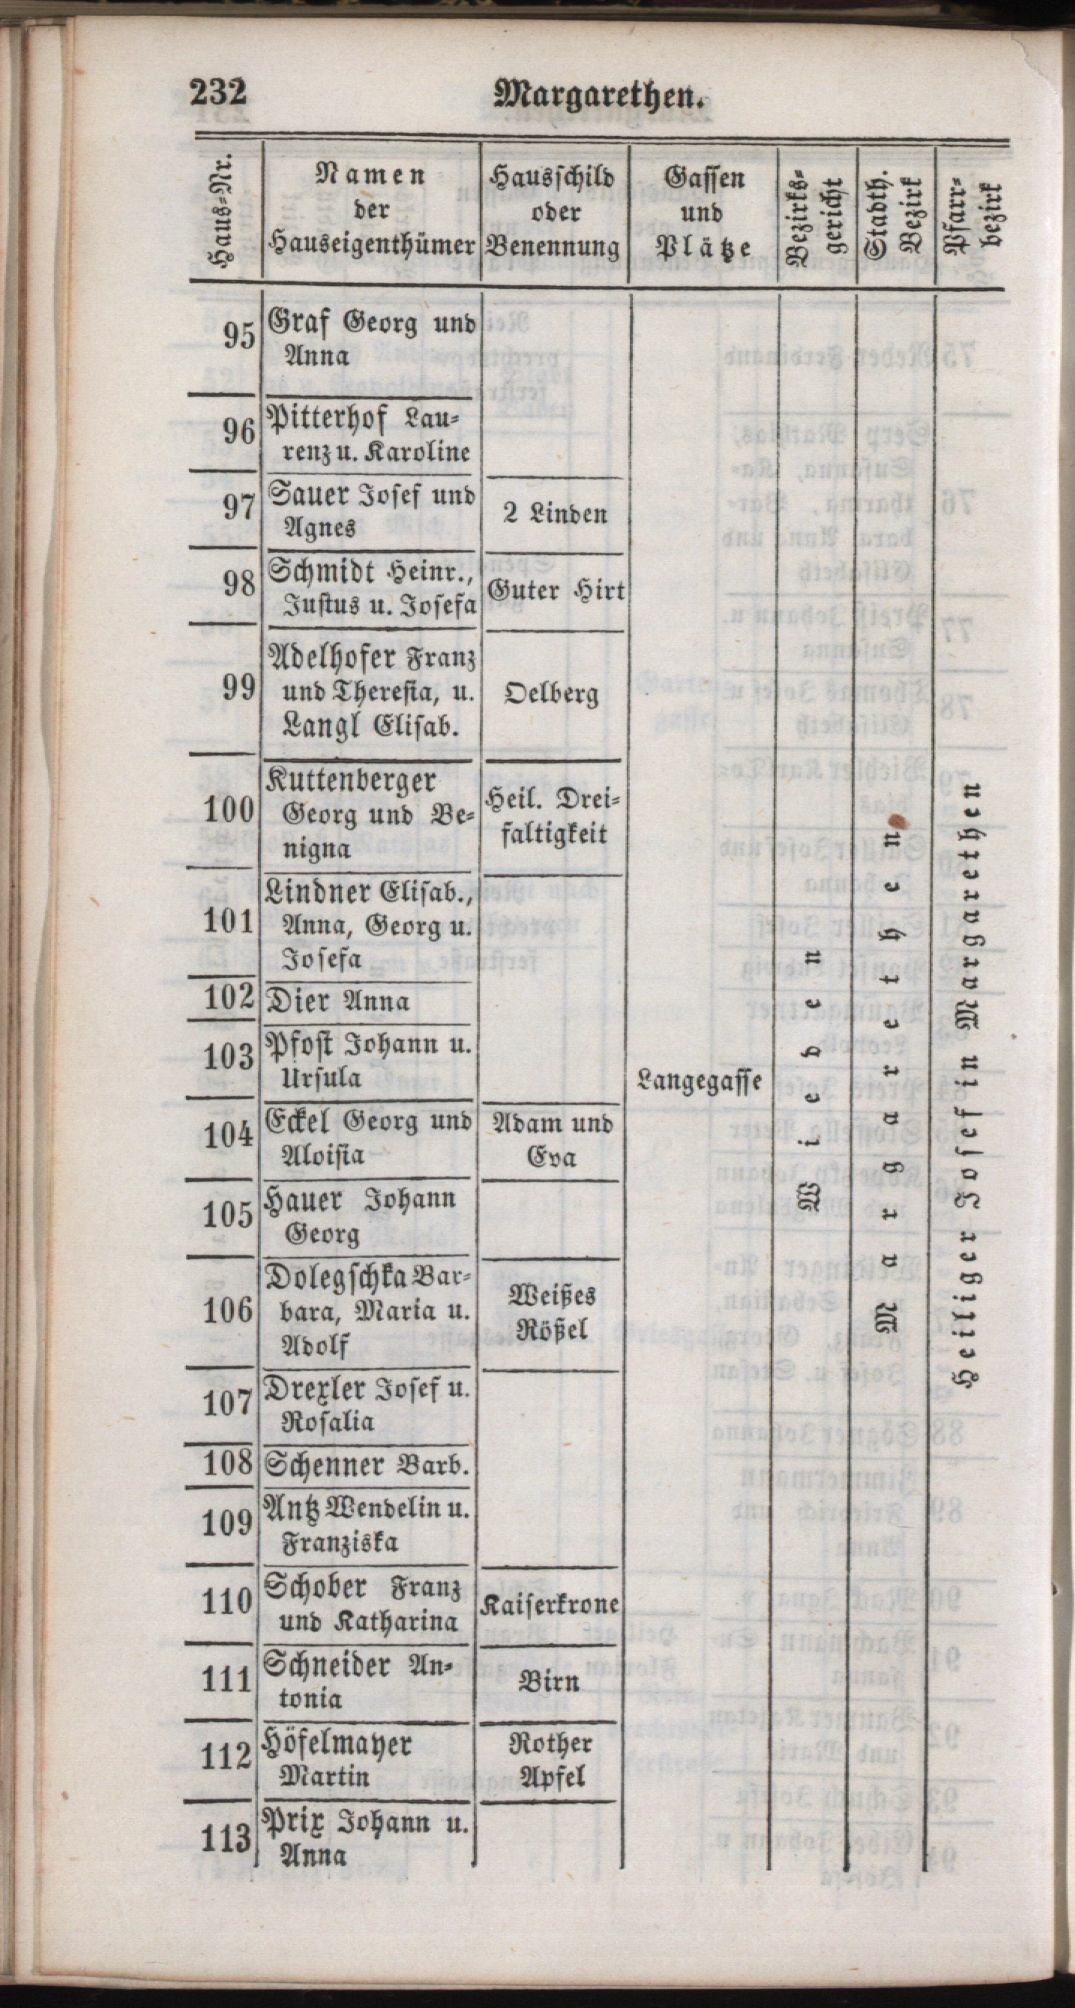 232
Margarethen.
Haus-Nr.
Namen
der
Hauseigenthümer
Hausschild
oder
Benennung
Gassen
und
Plätze
Bezirks-
gericht
Stadth.
Bezirk
Pfarr-
bezirk
95
Graf Georg und
Anna
96
Pitterhof Lau-
renz u. Karoline
97
Sauer Josef und
Agnes
2 Linden
98
Schmidt Heinr.,
Justus u. Josefa
Guter Hirt
99
Adelhofer Franz
und Theresia, u.
Langl Elisab.
Oelberg
100
Kuttenberger
Georg und Be-
nigna
Heil. Drei-
faltigkeit
101
Lindner Elisab.,
Anna, Georg u.
Josefa
102
Dier Anna
103
Pfost Johann u.
Ursula
104
Eckel Georg und
Aloisia
Adam und
Eva
105
Hauer Johann
Georg
106
Dolegschka Bar-
bara, Maria u.
Adolf
Weißes
Rößel
107
Drexler Josef u.
Rosalia
108
Schenner Barb.
109
Antz Wendelin u.
Franziska
110
Schober Franz
und Katharina
Kaiserkrone
111
Schneider An-
tonia
Birn
112
Höfelmayer
Martin
Rother
Apfel
113
Prix Johann u.
Anna
Langegasse
Wieden
Margarethen
Heeiliger Josef in Margarethen